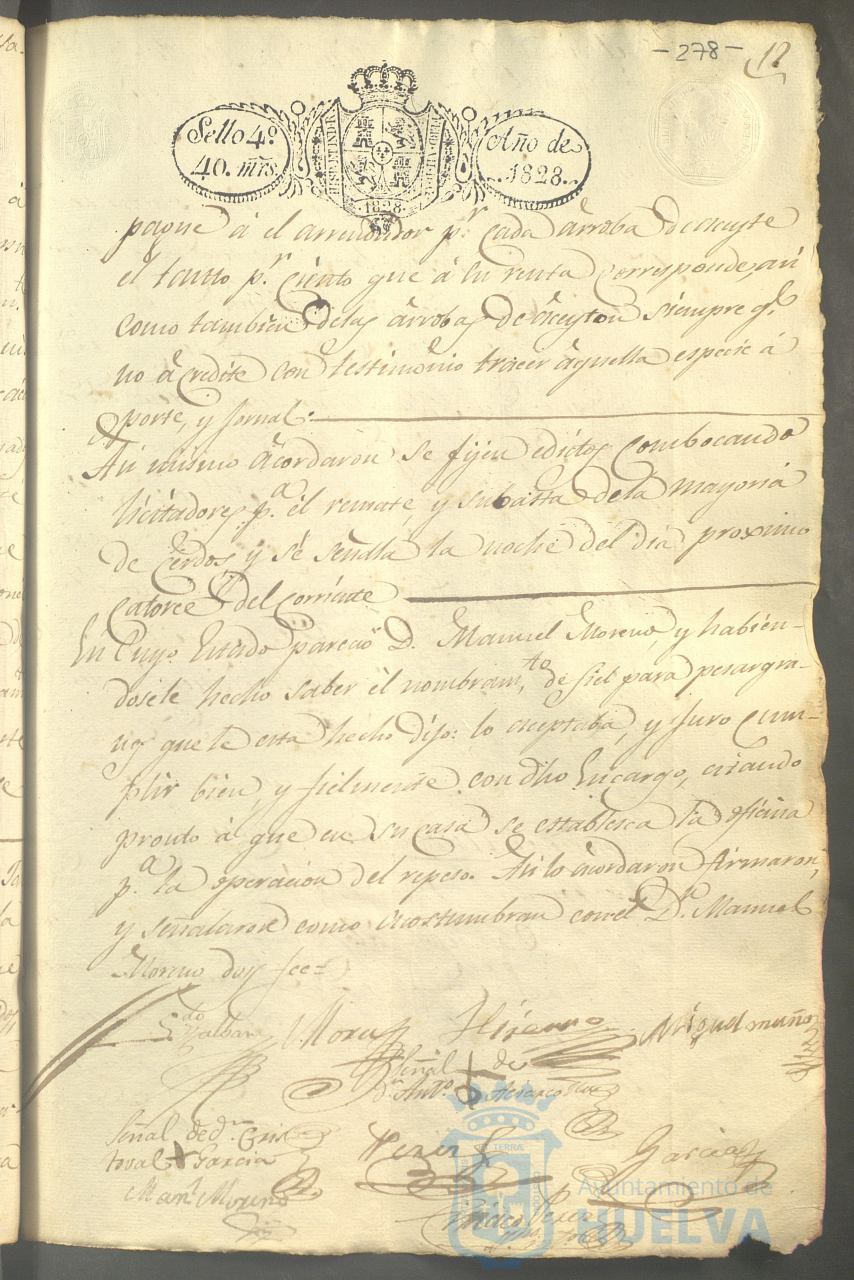 -278- 12
Sello 4º.
40. mrs.
HISPAN. ET IND. R.
Año de
1828.
1828
pague á el arrendador pr. cada àrroba de aceyte
el tanto pr. ciento que á su renta corresponde, asi
como tambien delas àrrobas de àceyton siempre qe.
no àcredite con testimonio traer àquella especie á
porte, y jornal.
Asi mismo àcordaron se fijen edictos combocando
licitadores pa. él remate, y subasta dela mayoria
de Cerdos y sé señala la noche del dia proximo
catorce del corriente
En cuyo Estado pareció D. Manuel Moreno, y habien-
dosele hecho saber él nombramto. de fiel para pesar gra-
nos que le esta hecho dijo: lo aceptaba, y juro cum-
plir bien, y fielmente con dho Encargo, estando
pronto á que en su casa se establesca la oficina
pa. la operacion del repeso. Asi lo àcordaron firmaron,
y señalaron como acostumbran con el Dn. Manuel
Moreno doy fee=
Mora Miguel muñoz
Señal de
dn. Anto.
Señal de dn. Cris
toval + Garcia Garcia
Manl. Moreno
TERRAE
Ayuntamiento de
HUELVA